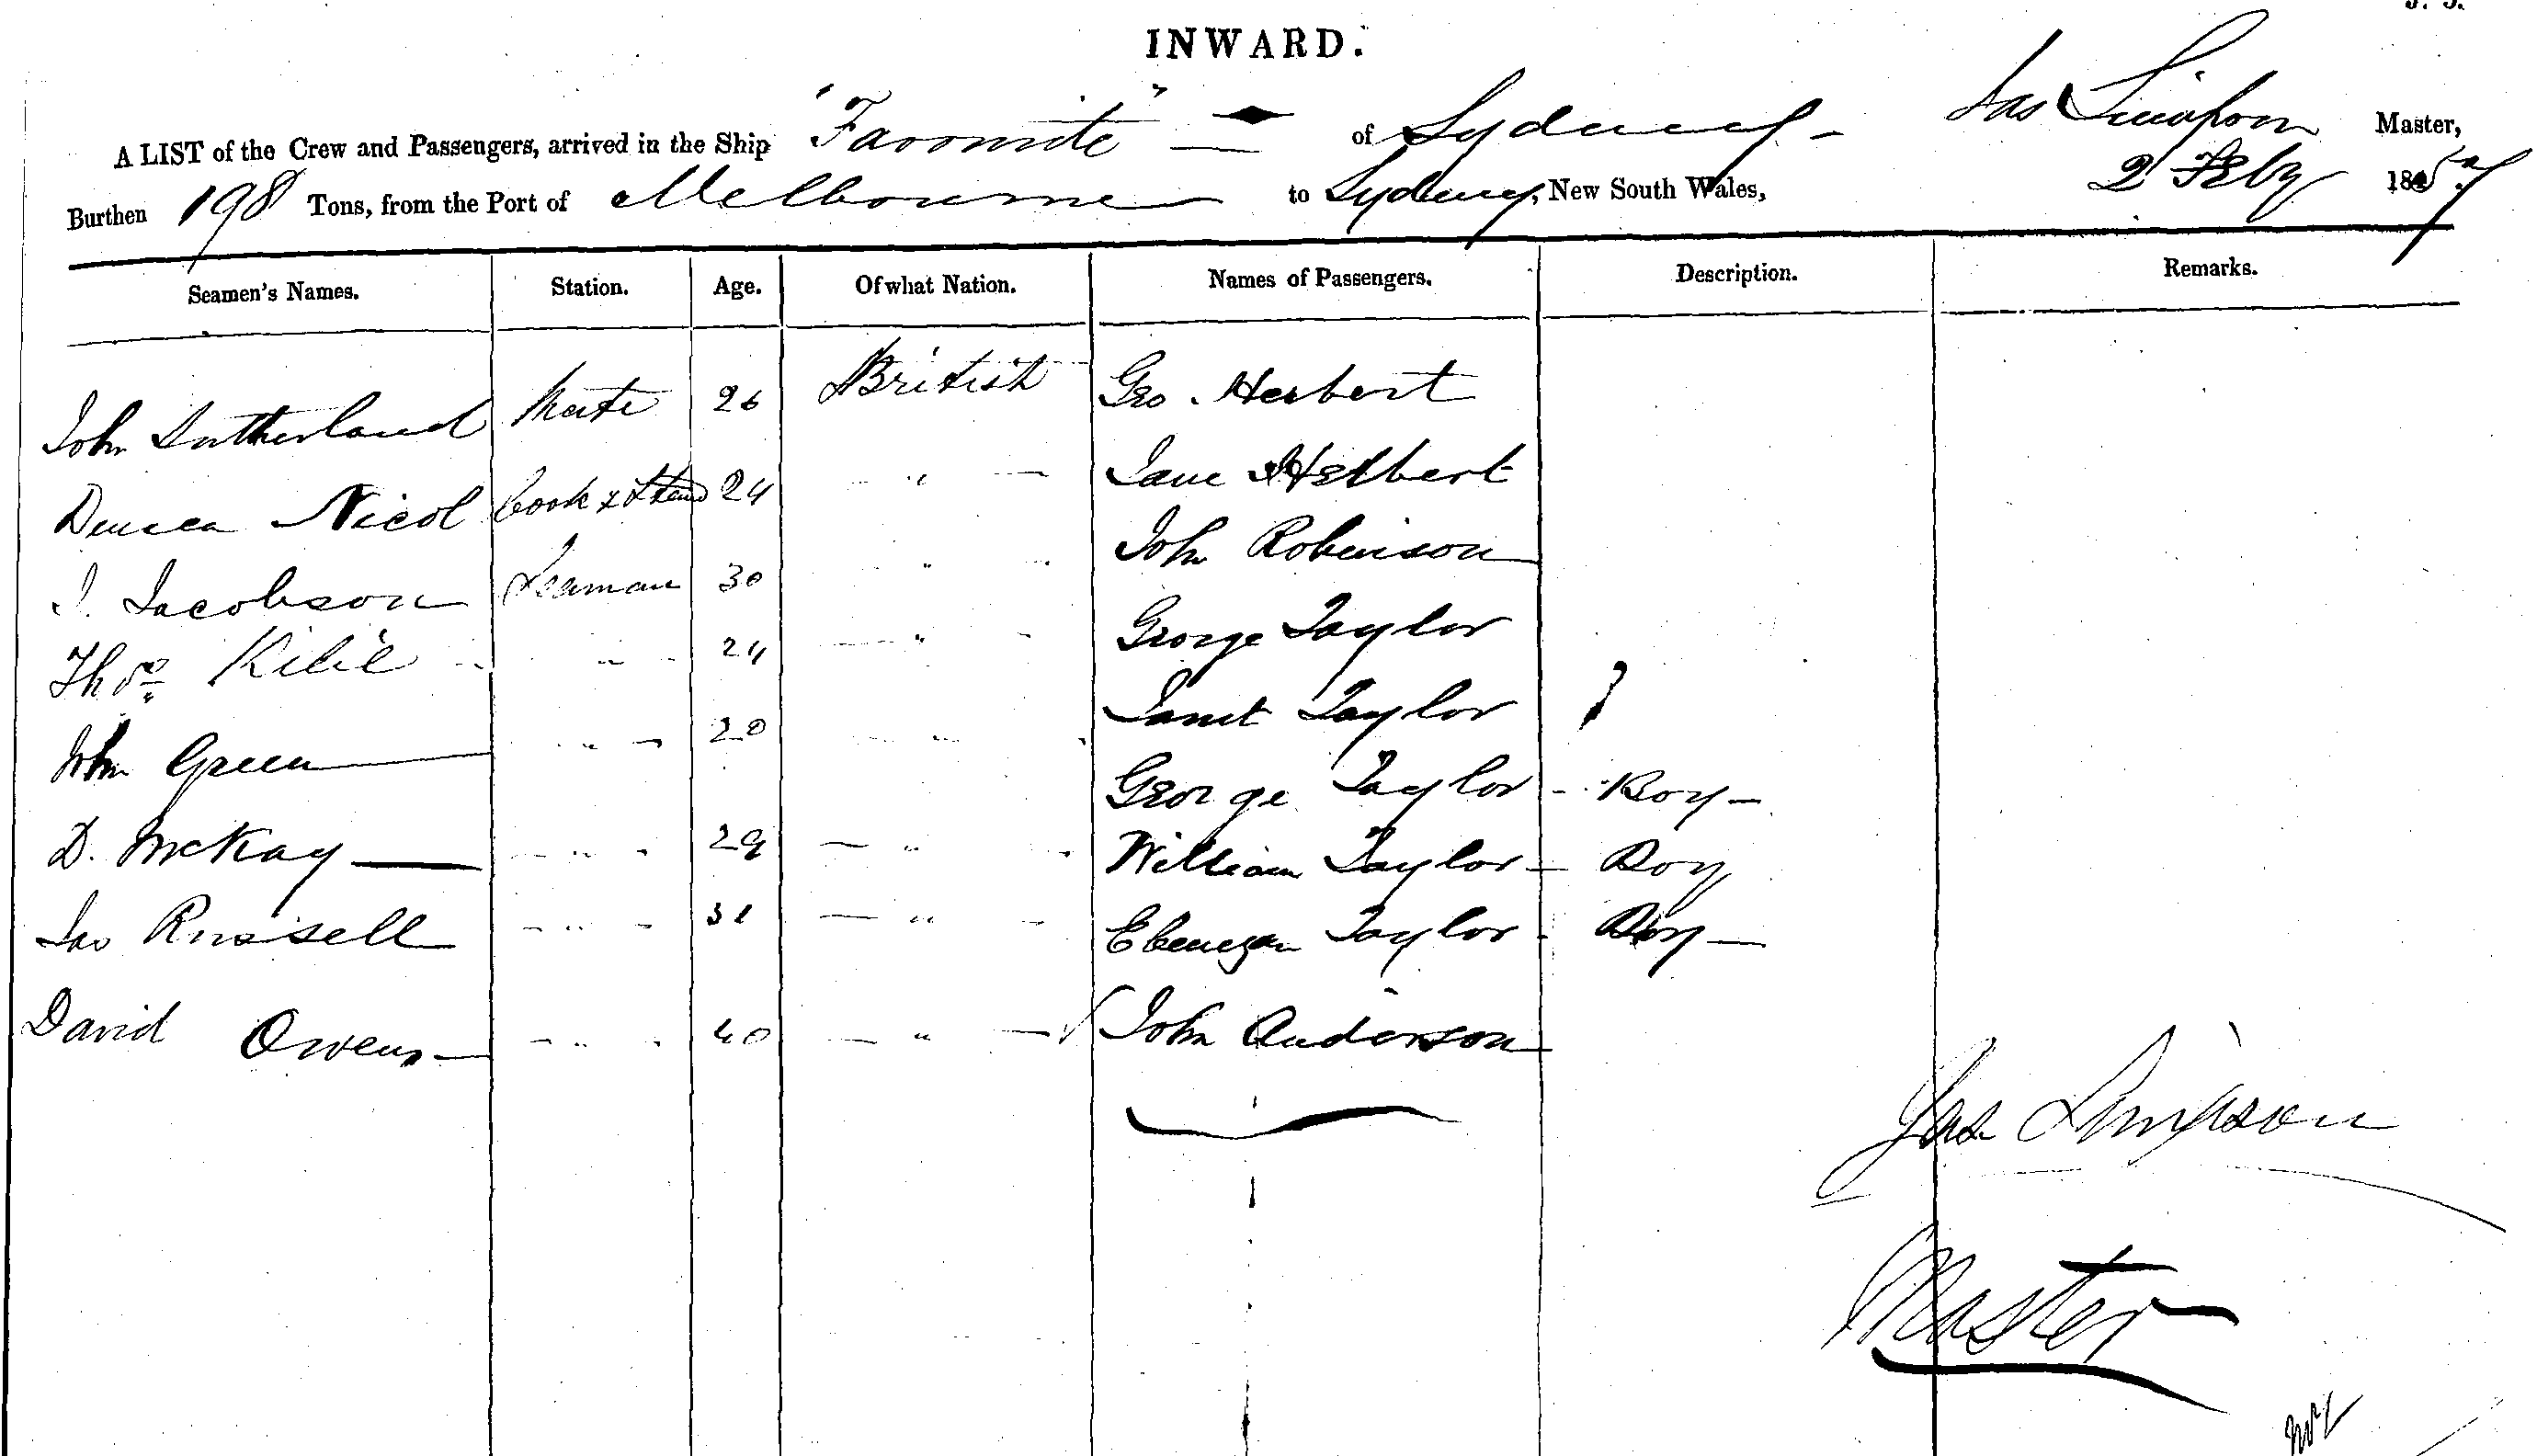 INWARD.
A LIST of the Crew and Passengers, arrived in the Ship "Favourite" of Sydney Jas Simpson Master,
Burthen 198 Tons, from the Port of Melbourne to Sydney, New South Wales, 2 Feby 1857
Seamen's Names. Station. Age. Of what Nation. Names of Passengers. Description. Remarks.
John Sutherland Mate 26 British Geo. Herbert
Nicol Cook & Stewd 24 " Jane Herbert
J. Jacobson Seaman 30 " John Robinson
Thos " 24 " George Taylor
John Green " 20 " Janet Taylor
D. McKay " 29 " George Taylor - Boy
Jas Russell " 31 " William Taylor - Boy
David Owens " 40 " Ebenezer Taylor - Boy
John Anderson
Jas Simpson
Master